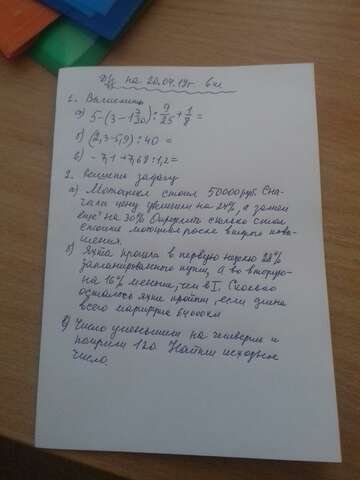 Д/з на 20.04.19г 6 кл
1. Вычислить
а) 5-(3-1 7/20):9/25+1/8=
б) (2,3-5,9):40=
в) -7,1+7,68:1,2=
2. Решить задачу
а) Мотоцикл стоил 50000 руб. Сна-
чала цену увеличили на 24%, а затем
ещё на 30%. Определить сколько стал
стоить мотоцикл после второго повы-
шения.
б) Яхта прошла в первую неделю 28%
запланированного пути, а во вторую-
на 16% меньше, чем в I. Сколько
осталось яхте пройти, если длина
всего маршрута 64000км
в) Число уменьшили на четверть и
получили 120. Найти исходное
число.